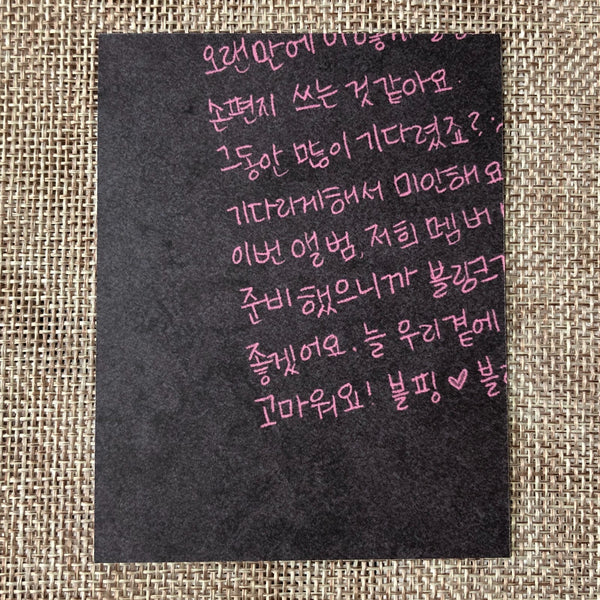 오랜만에 이렇게
손편지 쓰는 것 같아요.
그동안 많이 기다렸죠?
기다리게해서 미안해요
이번 앨범, 저희 멤버
준비 했으니까 블링크
좋겠어요. 늘 우리곁에
고마워요! 블핑 ♥ 블